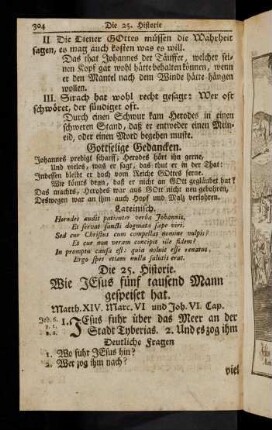 304 Die 25. Historie
II Die Diener GOttes müssen die Wahrheit
sagen, es mag auch kosten was es will.
Das that Johannes der Täuffer, welcher sei-
nen Kopf gar wohl hätte behalten können, wenn
er den Mantel nach dem Winde hätte hängen
wollen.
III. Sirach hat wohl recht gesagt: Wer oft
schwöret, der sündiget oft.
Durch einen Schwur kam Herodes in einen
schweren Stand, daß er entweder einen Mein-
eid, oder einen Mord begehen muste.
Gottselige Gedancken.
Johannes predigt scharff; Herodes hört ihn gerne,
Und vieles, was er sagt, das thut er in der That:
Indessen bleibt er doch vom Reiche GOttes ferne.
Wie kömts denn, daß er nicht an GOtt gegläubet hat?
Das machts, Herodes war aus GOtt nicht neu gebohren,
Deswegen war an ihm auch Hopf und Maltz verlohren.
Lateinisch.
Herodes audit patienter verba Johannis,
Et servat sancti dogmata sæpe viri:
Sed cur Christus eum compellat nomine vulpis?
Et cur non veram concipit ille fidem?
In promptu causa est: quia noluit esse renatus,
Ergo spes etiam nulla salutis erat.
Die 25. Historie.
Wie JEsus fünf tausend Mann
gespeiset hat.
Matth. XIV. Marc. VI und Joh. VI. Cap.
1. JEsus fuhr über das Meer an der
Stadt Tyberias. 2. Und es zog ihm
Deutliche Fragen
1. Wo fuhr JEsus hin?
2. Wer zog ihm nach?
viel